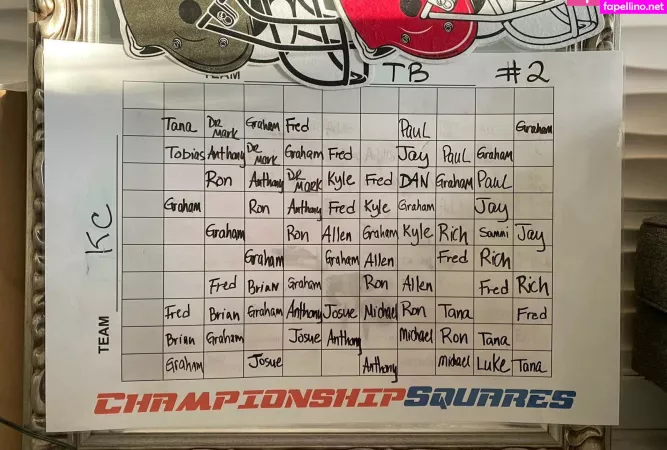 fapellino.net
TEAM TB #2
Tana Dr Mark Graham Fred Paul Graham
Tobias Anthony Dr Mark Graham Fred Jay Paul Graham
Ron Anthony Dr Mark Kyle Fred DAN Graham Paul
Graham Ron Anthony Fred Kyle Graham Jay
Graham Ron Allen Graham Kyle Rich Sammi Jay
Graham Graham Allen Fred Rich
Fred Brian Graham Ron Allen Fred Rich
Fred Brian Graham Anthony Josue Michael Ron Tana Fred
Brian Graham Josue Anthony Michael Ron Tana
Grahm Josue Anthony Michael Luke Tana
TEAM KC
CHAMPIONSHIPSQUARES